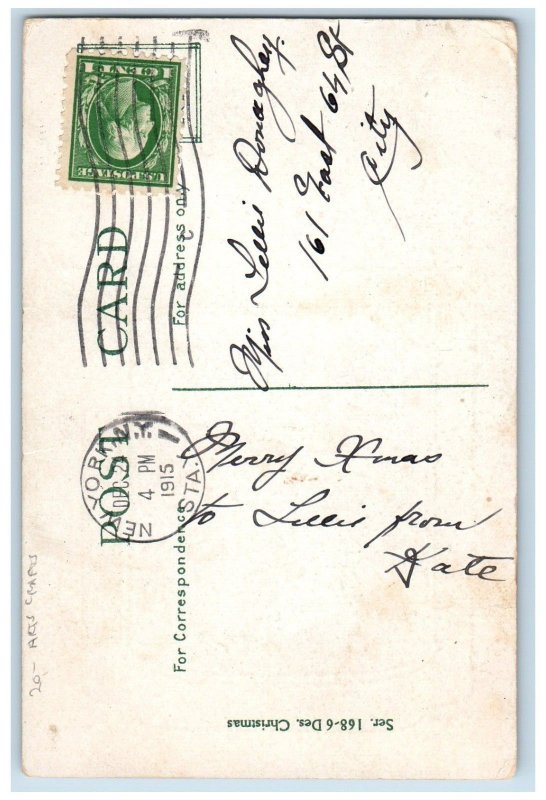 POST CARD
For Correspondence
For address only
U.S. POSTAGE
1 CENT 1
NEW YORK, N.Y.
STA.
DEC 2
4 PM
1915
Merry Xmas
to Lillie from
Kate
Miss Lillie Donaghey.
161 East 64 St
City
Ser. 168-6 Des. Christmas
20- ARTS CRAFTS